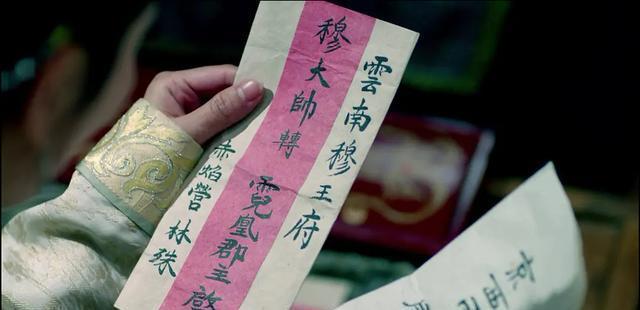 雲南穆王府
穆大帥轉霓凰郡主啟
赤焰營林殊